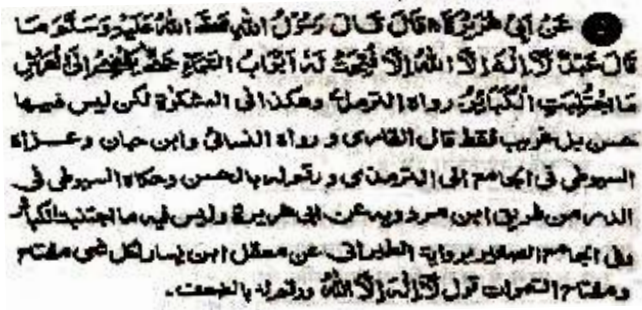 عَنْ أَبِيْ هُرَيْرَةَ قَالَ قَالَ رَسُوْلُ اللهِ صَلَّى اللهُ عَلَيْهِ وَسَلَّمَ مَا
قَالَ عَبْدٌ لَآ اِلٰهَ اِلَّا اللهُ اِلَّا فُتِحَتْ لَهٗ اَبْوَابُ السَّمَآءِ حَتّٰى يُفْضِيَ اِلَى الْعَرْشِ
مَا اجْتُنِبَتِ الْكَبَائِرُ رواه الترمذى وهكذا فى المشكوة لكن ليس فيها
حسن بل غريب فقط قال القارى و رواه النسائى وابن حبان وعزاه
السيوطى فى الجامع الى الترمذى و رقم له بالحسن وحكاه السيوطى فى
الدر من طريق ابن مردويه عن ابى هريرة وليس فيه ما اجتنبت الكبائر
وفى الجامع الصغير برواية الطبرانى عن معقل ابن يسار لكل شئ مفتاح
ومفتاح السموات قول لَآ اِلٰهَ اِلَّا اللهُ ورقم له بالضعف۔